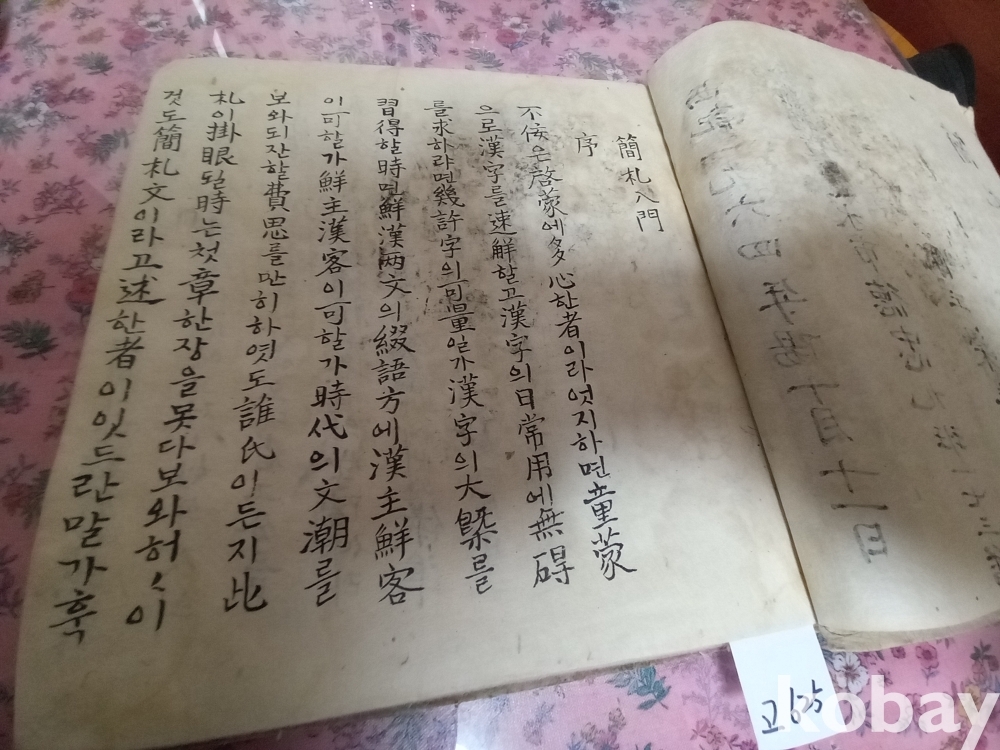 簡札入門
序
不佞은 啓蒙에 多心한 者이라 엇지하면 童蒙
으로 漢字를 速解할고 漢字의 日常用에 無碍
를 求하랴면 幾許字의 可量일가 漢字의 大槩를
習得할 時면 鮮漢兩文의 綴語方에 漢主鮮客
이 可할가 鮮主漢客이 可할가 時代의 文潮를
보와 되잔할 費思를 만히 하엿도 誰氏이든지 此
札이 掛眼될 時는 첫 章 한 장을 못다 보와 허〻 이
것도 簡札文이라고 述한 者이 잇드란 말가 훅
고625
kobay